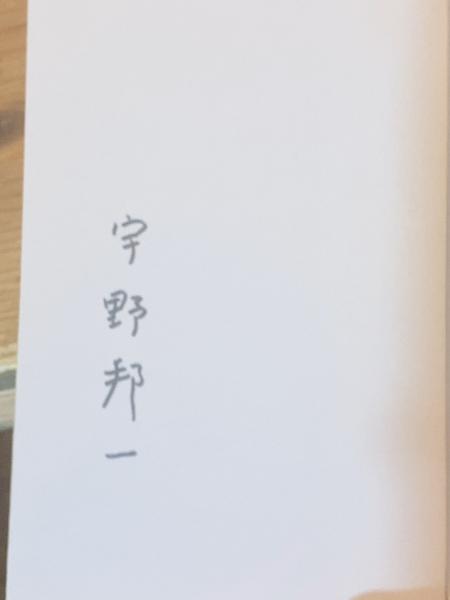 宇野邦一